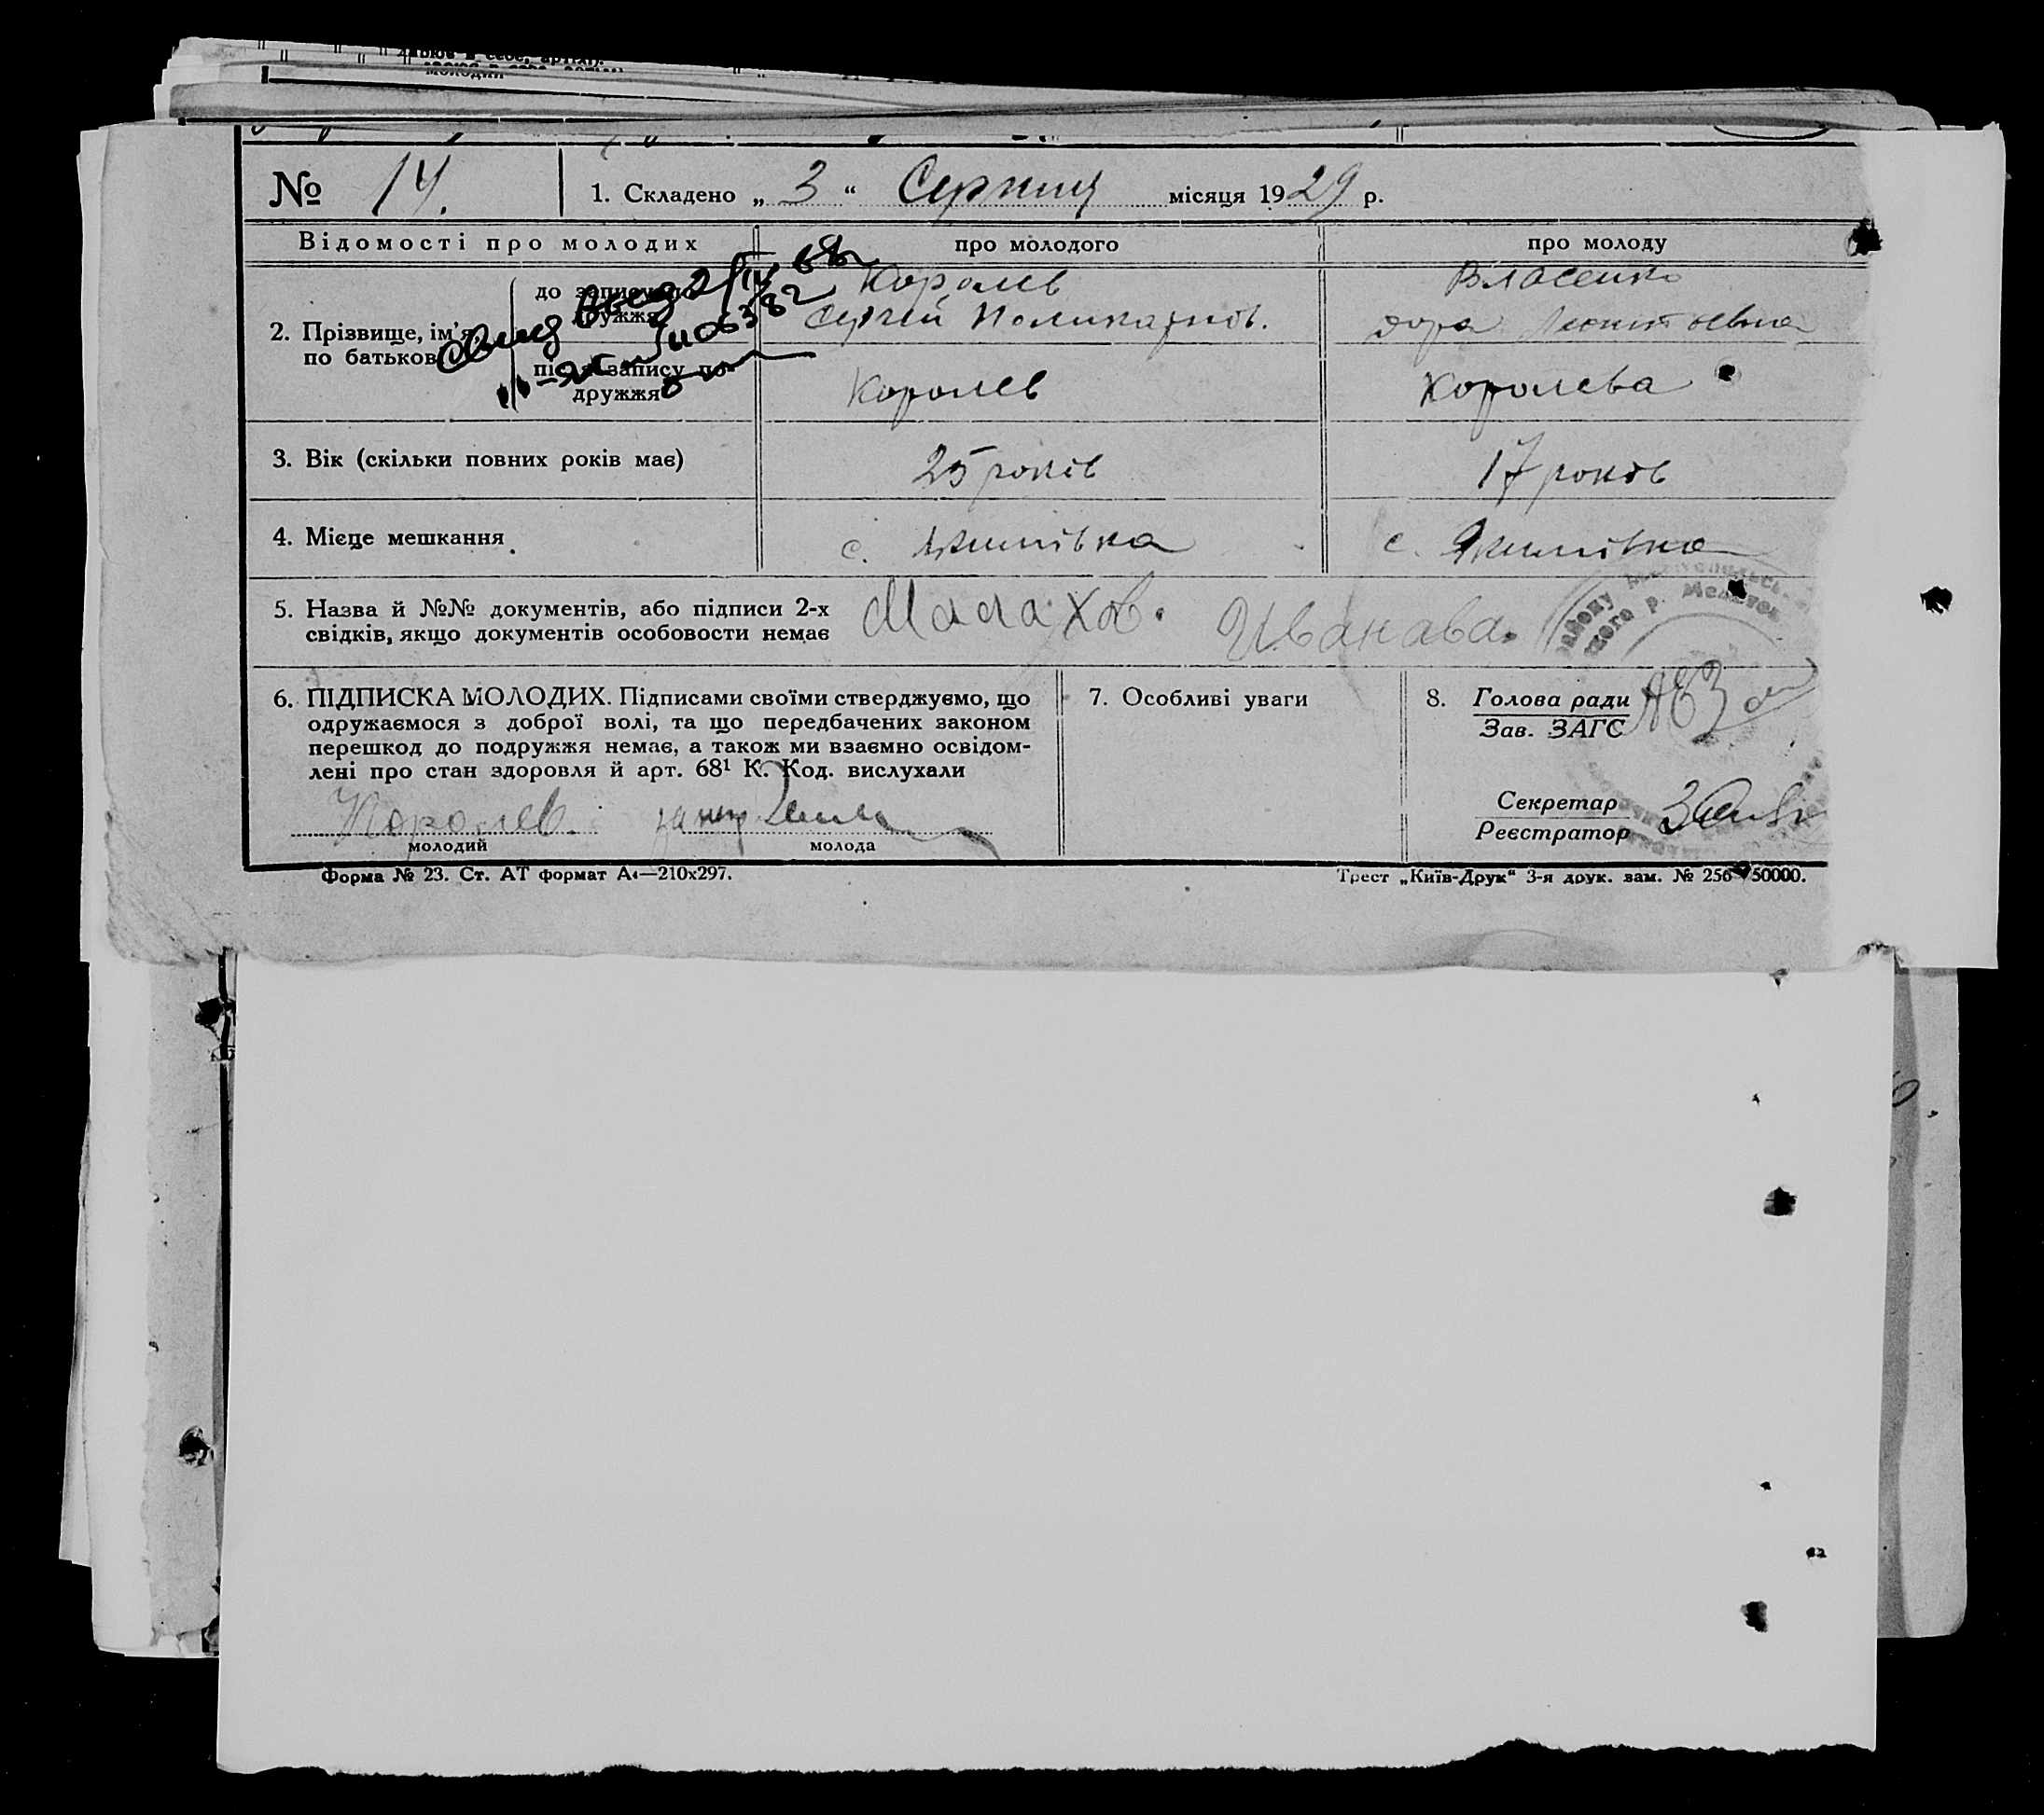 № 14. 1. Складено „ 3 “ Серпня місяця 1929 р.
Відомості про молодих про молодого про молоду
2. Прізвище, ім'я, по батькові
до запису подружжя
Королев
Сергей Поликарпов.
Власенко
Дора
після запису подружжя
Королев
Королева
Свид выд 2/IV 68г
3. Вік (скільки повних років має) 25 років 17 років
4. Місце мешкання с. Якимівка с. Якимівка
5. Назва й №№ документів, або підписи 2-х
свідків, якщо документів особовости немає
Малахов. Иванава.
6. ПІДПИСКА МОЛОДИХ. Підписами своїми стверджуємо, що
одружаємося з доброї волі, та що передбачених законом
перешкод до подружжя немає, а також ми взаємно освідом-
лені про стан здоровля й арт. 68¹ К. Код. вислухали
Королев.
молодий молода
7. Особливі уваги
8. Голова ради
Зав. ЗАГС
Секретар
Реєстратор
Форма № 23. Ст. АТ формат А4—210х297.
Трест „Київ-Друк“ 3-я друк. зам. № 256 50000.